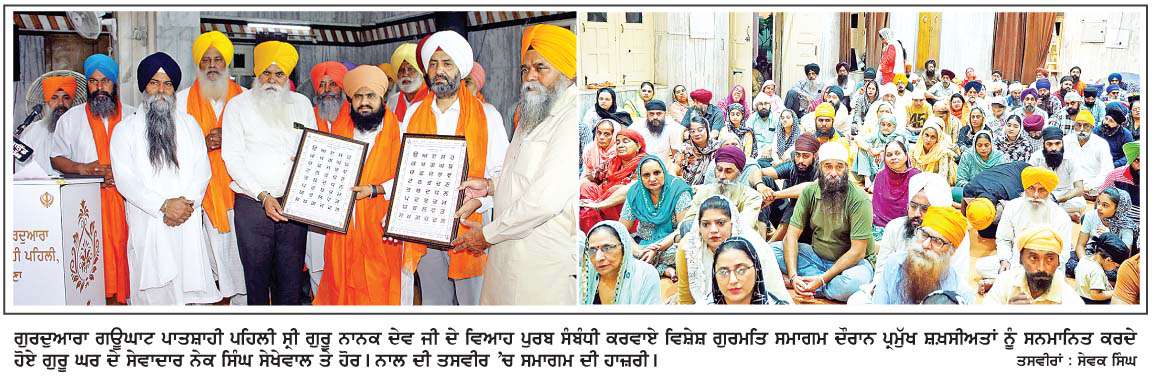 ਗੁਰਦੁਆਰਾ
ਹੀ ਪਹਿਲੀ,
45
ਗੁਰਦੁਆਰਾ ਗਊਘਾਟ ਪਾਤਸ਼ਾਹੀ ਪਹਿਲੀ ਸ੍ਰੀ ਗੁਰੂ ਨਾਨਕ ਦੇਵ ਜੀ ਦੇ ਵਿਆਹ ਪੁਰਬ ਸੰਬੰਧੀ ਕਰਵਾਏ ਵਿਸ਼ੇਸ਼ ਗੁਰਮਤਿ ਸਮਾਗਮ ਦੌਰਾਨ ਪ੍ਰਮੁੱਖ ਸ਼ਖ਼ਸੀਅਤਾਂ ਨੂੰ ਸਨਮਾਨਿਤ ਕਰਦੇ
ਹੋਏ ਗੁਰੂ ਘਰ ਦੇ ਸੇਵਾਦਾਰ ਨੇਕ ਸਿੰਘ ਸੇਖੇਵਾਲ ਤੇ ਹੋਰ। ਨਾਲ ਦੀ ਤਸਵੀਰ 'ਚ ਸਮਾਗਮ ਦੀ ਹਾਜ਼ਰੀ।
ਤਸਵੀਰਾਂ : ਸੇਵਕ ਸਿੰਘ